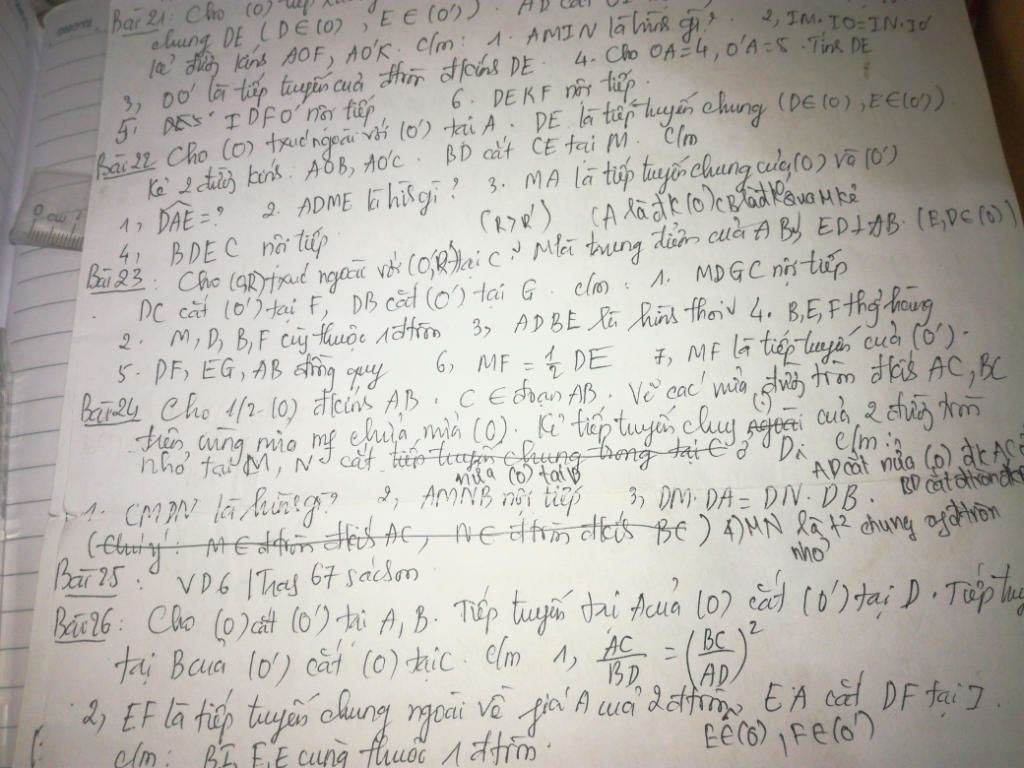 Bài 21: Cho (O) tiếp xúc
chung DE (D∈(O), E∈(O')). AD cắt
kẻ đường kính AOF, AO'K. C/m: 1. AMIN là hình gì? 2, IM.IO=IN.IO'
3, OO' là tiếp tuyến của đtròn đkính DE. 4. Cho OA=4, O'A=5. Tính DE
5. IDFO' nội tiếp 6. DEKF nội tiếp.
Bài 22 Cho (O) txúc ngoài với (O') tại A. DE là tiếp tuyến chung (D∈(O), E∈(O')).
Kẻ 2 đường kính: AOB, AO'C. BD cắt CE tại M. C/m
1, DAE=? 2. ADME là hình gì? 3. MA là tiếp tuyến chung của (O) và (O')
4, BDEC nội tiếp. (R>R') (CA là đk (O) CB là đk Qua M kẻ
Bài 23: Cho (O,R) txúc ngoài với (O',R') tại C. M là trung điểm của AB ED⊥AB. (E,D∈(O))
DC cắt (O') tại F, DB cắt (O') tại G. c/m: 1. MDGC nội tiếp
2. M, D, B, F cùng thuộc 1 đtròn 3, ADBE là hình thoi 4. B,E,F thẳng hàng
5. DF, EG, AB đồng quy 6, MF = 1/2 DE 7, MF là tiếp tuyến của (O').
Bài 24 Cho 1/2 (O) đkính AB. C∈đoạn AB. Vẽ các nửa đường tròn đkính AC, BC
trên cùng nửa mf chứa nửa (O). Kẻ tiếp tuyến chung ngoài của 2 đường tròn
nhỏ tại M, N cắt tiếp tuyến chung trong tại C ở D. C/m:
nửa (O) tại D AD cắt nửa (O) đk AC
1. CMDN là hình gì? 2, AMNB nội tiếp 3, DM.DA = DN.DB. BD cắt đtròn đk
(Chú ý: M∈đtròn đkính AC, N∈đtròn đkính BC) 4) MN là t² chung 2 đtròn
nhỏ
Bài 25: VD6 | Thay 67
Bài 26: Cho (O) cắt (O') tại A, B. Tiếp tuyến tại A của (O) cắt (O') tại D. Tiếp tuy
tại B của (O') cắt (O) tại C. C/m 1, AC/BD = (BC/AD)²
2, EF là tiếp tuyến chung ngoài về phía A của 2 đtròn, EA cắt DF tại I.
E∈(O), F∈(O')
c/m: B,I,F,E cùng thuộc 1 đtròn.